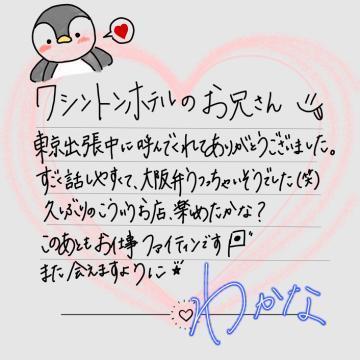 ワシントンホテルのお兄さん
東京出張中に呼んでくれてありがとうございました。
すごく話しやすくて、大阪弁うつっちゃいそうでした(笑)
久しぶりのこういうお店、楽めたかな？
このあともお仕事ファイティンです
また会えますように
わかな